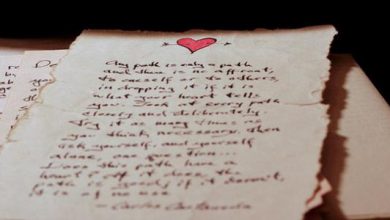 Any path is only a path
and there is no affront,
to oneself or to others,
in dropping it if it is
what your heart tells
you. Look at every path
closely and deliberately.
Try it as many times as
you think necessary. Then
ask yourself, and yourself
alone, one question...
Does this path have a
heart? If it does the
path is good; if it doesn't,
it is of no use.
- Carlos Castaneda